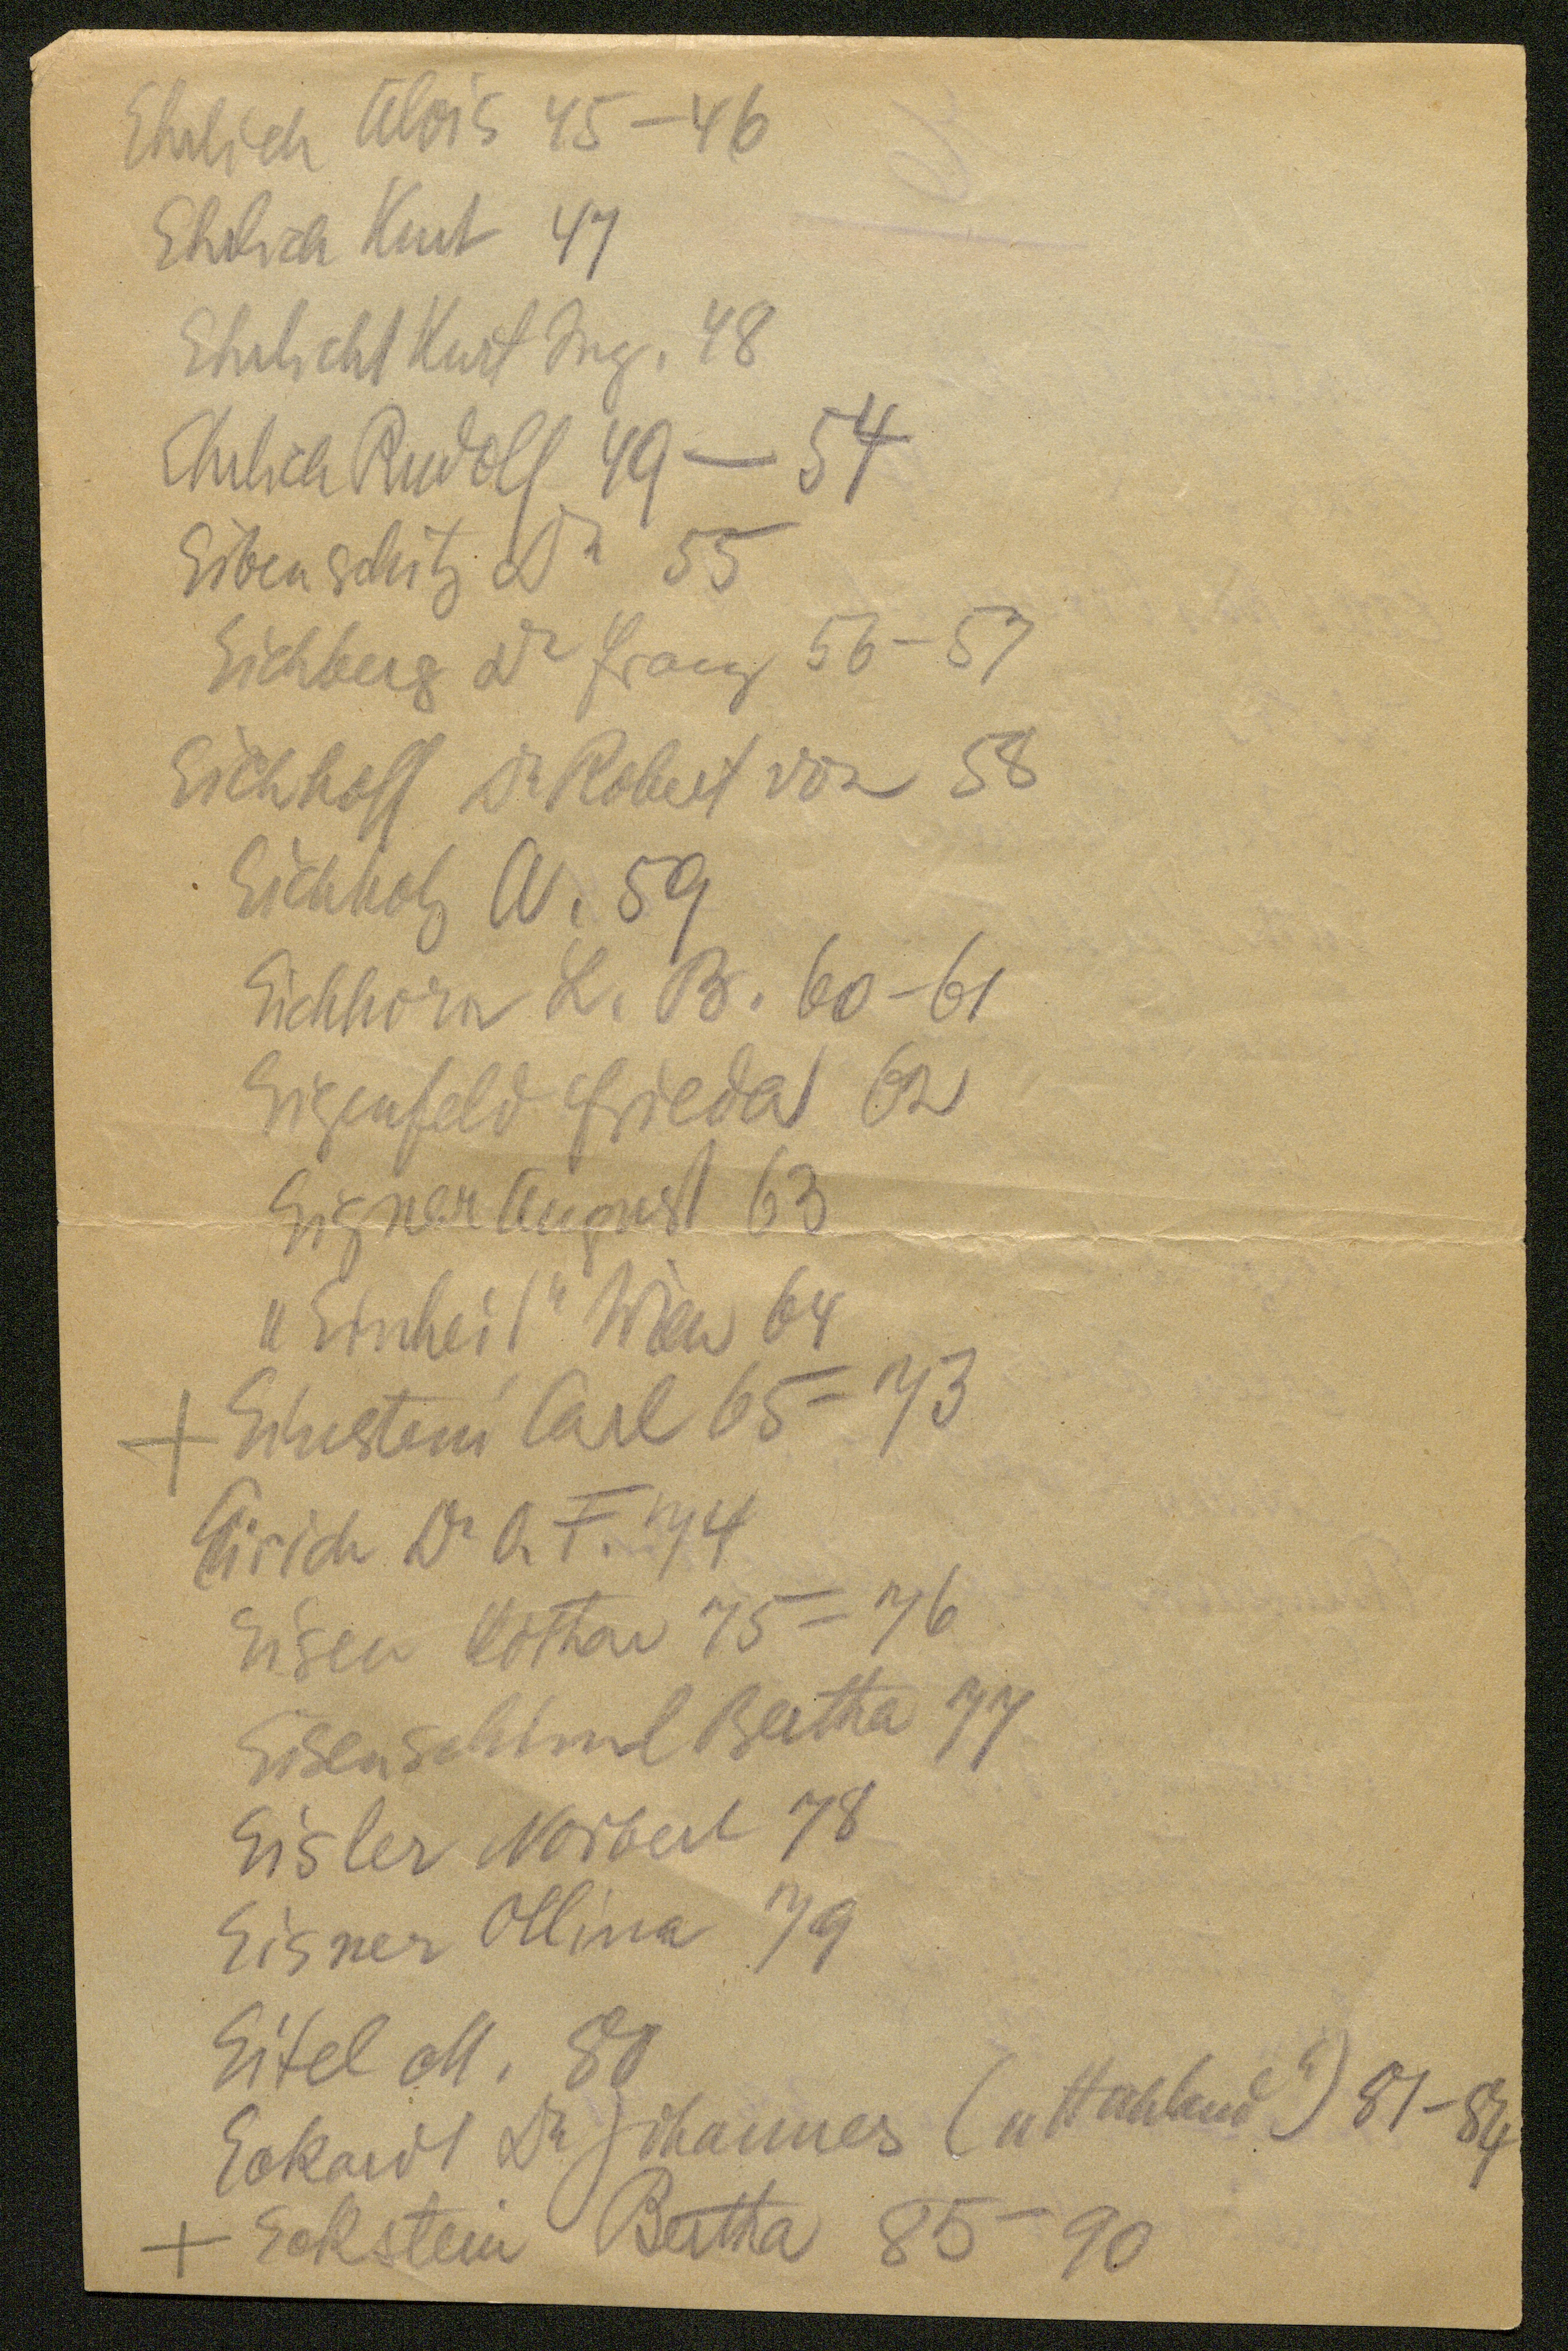 Ehrlich Alois 45-46
Ehrlich Kurt 47
Ehrlich Kurt Ing. 48
Ehrlich Rudolf 49 — 54
Eibenschitz Dr 55
Eichberg Dr Franz 56-57
Eichhoff Dr Robert von 58
Eichholz A. 59
Eichhorn L. B. 60-61
Eigenfeld Frieda 62
Eigner August 63
"Einheit" Wien 64
+ Einstein Carl 65=73
Eirich Dr O. F. 74
Eisen 75=76
Eisenschiml Bertha 77
Eisler Norbert 78
Eisner Mina 79
Eitel M. 80
Eckardt Dr Johannes ( ) 81-84
+ Eckstein Bertha 85-90